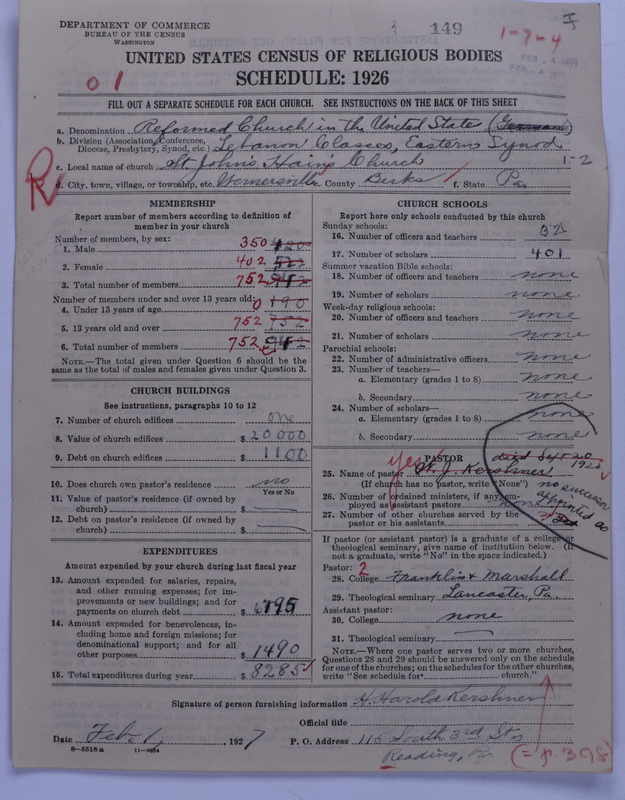 DEPARTMENT OF COMMERCE
BUREAU OF THE CENSUS
WASHINGTON
149
1-7-4
UNITED STATES CENSUS OF RELIGIOUS BODIES
SCHEDULE: 1926
01
FILL OUT A SEPARATE SCHEDULE FOR EACH CHURCH. SEE INSTRUCTIONS ON THE BACK OF THIS SHEET
a. Denomination Reformed Church in the United States (German)
b. Division (Association, Conference, Diocese, Presbytery, Synod, etc.) Lebanon Classes, Eastern Synod
c. Local name of church St. John's Hains Church 1-2
d. City, town, village, or township, etc. Wernersville e. County Berks f. State Pa
MEMBERSHIP
Report number of members according to definition of
member in your church
Number of members, by sex:
1. Male 350 420
2. Female 402 522
3. Total number of members 752 942
Number of members under and over 13 years old:
4. Under 13 years of age 0 190
5. 13 years old and over 752 752
6. Total number of members 752 942
NOTE.—The total given under Question 6 should be the
same as the total of males and females given under Question 3.
CHURCH BUILDINGS
See instructions, paragraphs 10 to 12
7. Number of church edifices one
8. Value of church edifices $ 20000
9. Debt on church edifices $ 1100
10. Does church own pastor's residence no
Yes or No
11. Value of pastor's residence (if owned by
church) $
12. Debt on pastor's residence (if owned by
church) $
EXPENDITURES
Amount expended by your church during last fiscal year
13. Amount expended for salaries, repairs,
and other running expenses; for im-
provements or new buildings; and for
payments on church debt $ 6795
14. Amount expended for benevolences, in-
cluding home and foreign missions; for
denominational support; and for all
other purposes $ 1490
15. Total expenditures during year $ 8285
CHURCH SCHOOLS
Report here only schools conducted by this church
Sunday schools:
16. Number of officers and teachers 32
17. Number of scholars 401
Summer vacation Bible schools:
18. Number of officers and teachers none
19. Number of scholars none
Week-day religious schools:
20. Number of officers and teachers none
21. Number of scholars none
Parochial schools:
22. Number of administrative officers none
23. Number of teachers—
a. Elementary (grades 1 to 8) none
b. Secondary none
24. Number of scholars—
a. Elementary (grades 1 to 8) none
b. Secondary none
PASTOR
yes
died 20
1926
25. Name of pastor W. J. Kershner
(If church has no pastor, write "None")
no successor
appointed as
26. Number of ordained ministers, if any, em-
ployed as assistant pastors none
27. Number of other churches served by the
pastor or his assistants
If pastor (or assistant pastor) is a graduate of a college or
theological seminary, give name of institution below. (If
not a graduate, write "No" in the space indicated.)
Pastor: 2
28. College Franklin & Marshall
29. Theological seminary Lancaster, Pa.
Assistant pastor:
30. College none
31. Theological seminary
NOTE.—Where one pastor serves two or more churches,
Questions 28 and 29 should be answered only on the schedule
for one of the churches; on the schedules for the other churches,
write "See schedule for church."
Signature of person furnishing information H. Harold Kershner
Official title
Date Feb. 1, 1927 P. O. Address 115 South 3rd St,
8-5518a 11-9034
Reading, Pa
(= p. 398)